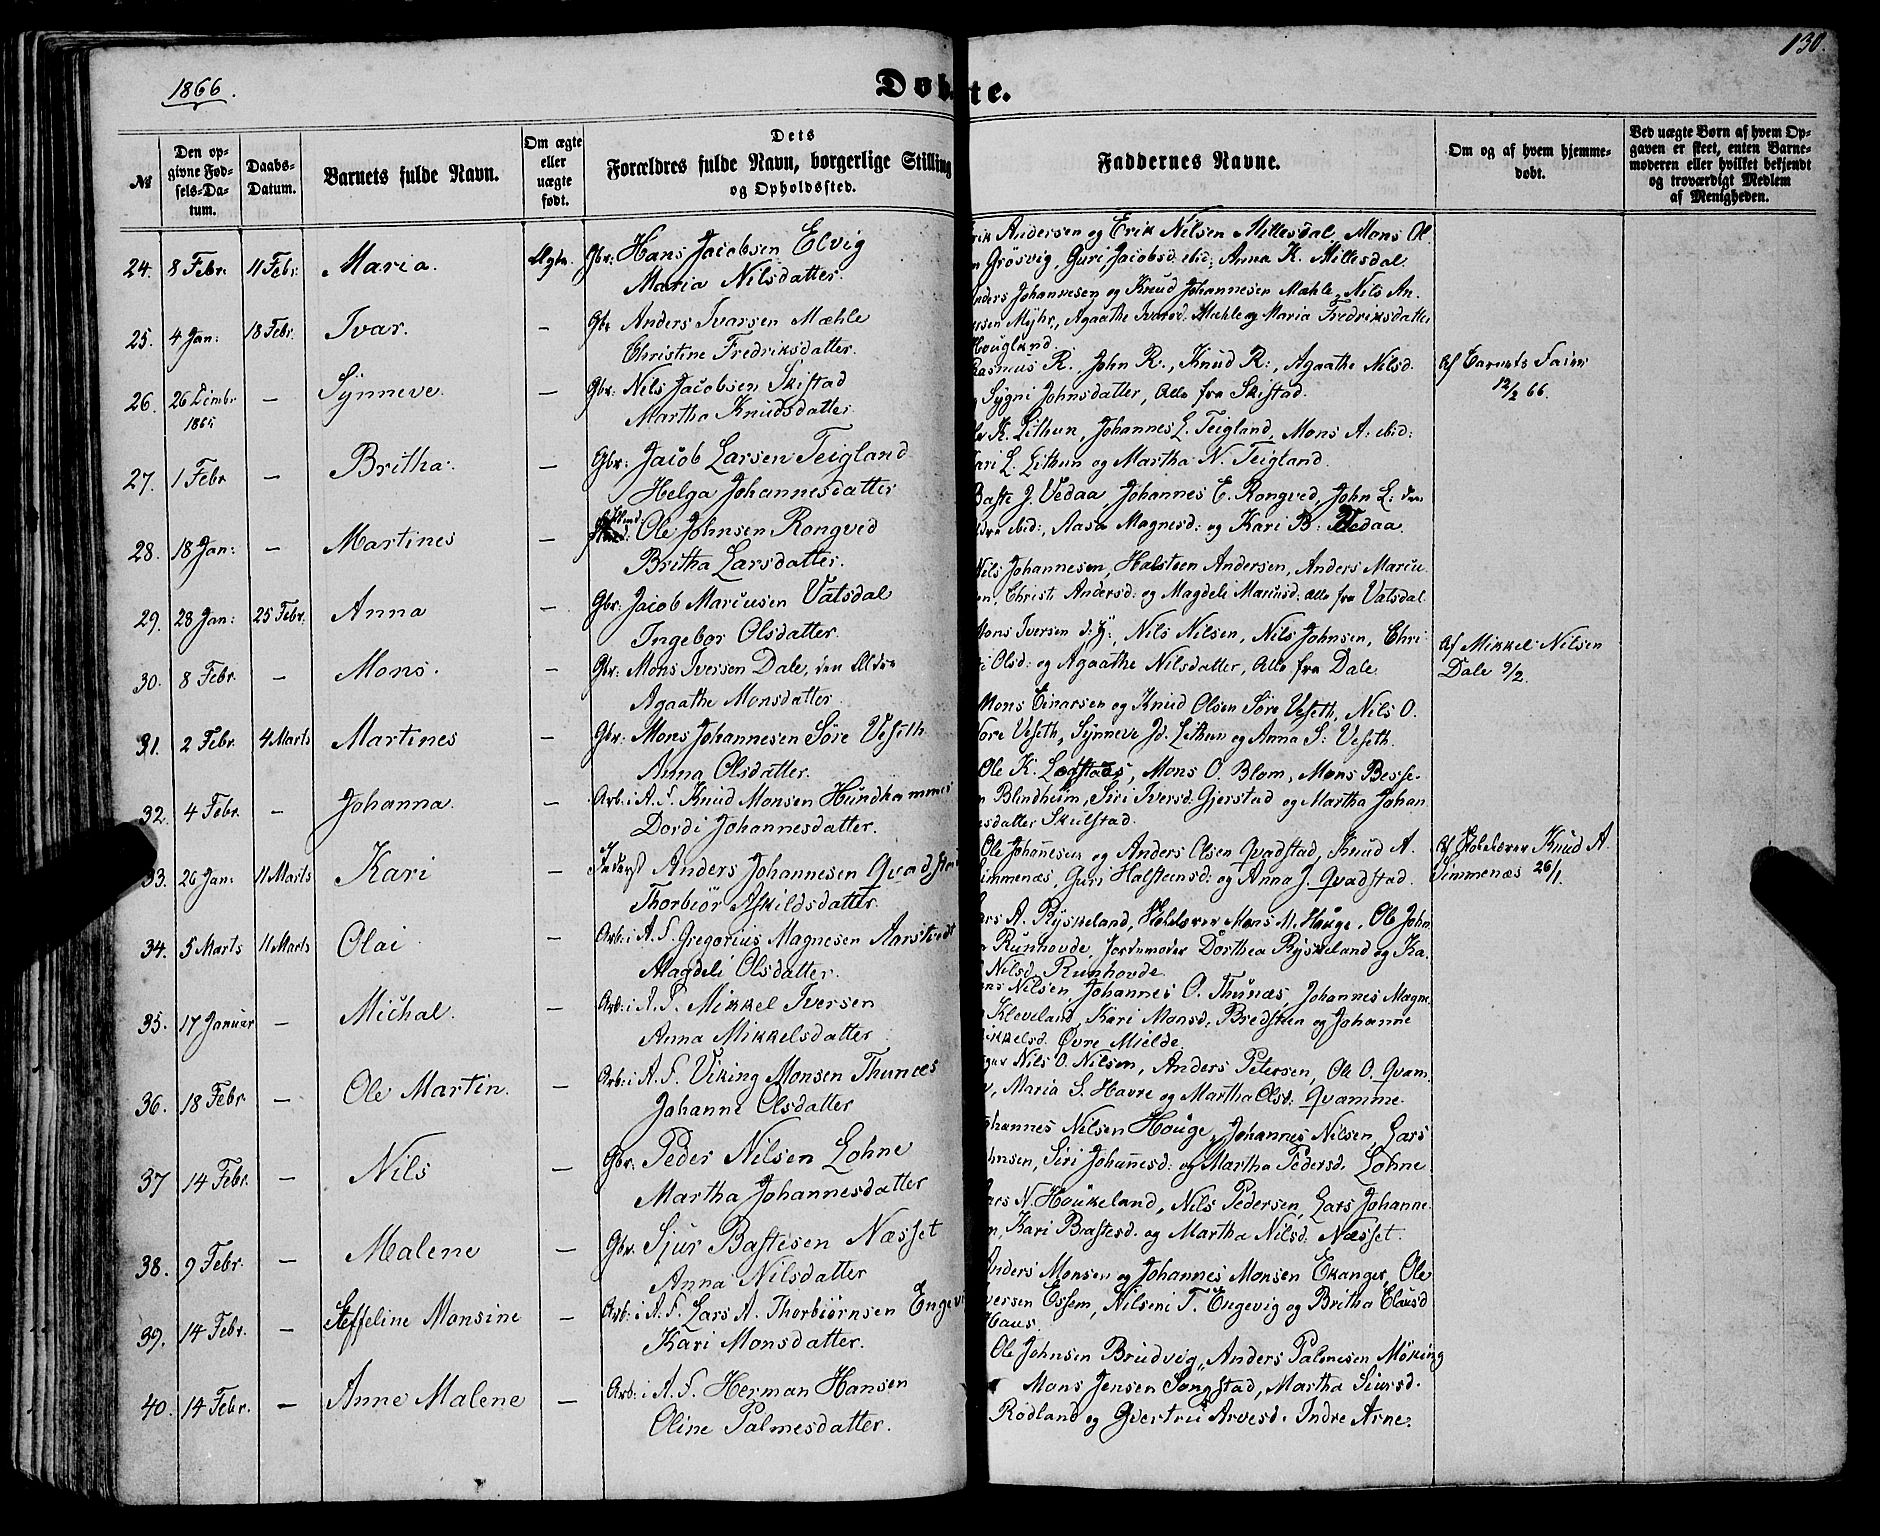 1866.
Døbte.
130.
№
Den opgivne Fødsels-Datum.
Daabs-Datum.
Barnets fulde Navn.
Om ægte eller uægte født.
Dets Forældres fulde Navn, borgerlige Stilling og Opholdssted.
Faddernes Navne.
Om og af hvem hjemmedøbt.
Ved uægte Børn af hvem Opgaven er skeet, enten Barnemoderen eller hvilket bekjendt og troværdigt Medlem af Menigheden.
24. 8 Febr. 11 Febr. Maria. Ægte. Gbr: Hans Jacobsen Elvig
Maria Nilsdatter.
Andersen og Erik Nilsen Millesdal, Mons Ol.
Grösvig, Guri Jacobsd. ibid; Anna K. Millesdal
25. 4 Jan: 18 Febr. Ivar. — Gbr Anders Ivarsen Mæhle
Christine Fredriksdatter.
Johannesen og Knud Johannesen Mæhle, Nils An.
Myhr, Agaathe Ivarsd. Mæhle og Maria Fredriksdatter
Houglund.
26. 26 Dcmbr 1865 — Synneve. — Gbr: Nils Jacobsen Skistad
Martha Knudsdatter
Rasmus R. John R:, Knud R:, Agaathe Nilsd.
Sygni Johnsdatter, Alle fra Skistad.
Af
12/2 66.
27. 1 Febr — Britha. — Gbr: Jacob Larsen Teigland
Helga Johannesdatter
K. Lithun, Johannes L. Teigland, Mons A: ibid:
Kari L. Lithun og Martha N. Teigland.
28. 18 Jan: — Martines — Ole Johnsen Rongved
Britha Larsdatter.
Baste J. Vedaa, Johannes E. Rongved, John L: den
ibid:, Aasa Magnesd: og Kari B: Vedaa.
29. 28 Jan: 25 Febr. Anna — Gbr: Jacob Marcusen Vatsdal
Ingebor Olsdatter.
Nils Johannesen, Halsteen Andersen, Anders Marcu.
Christ. Andersd: og Magdeli Marcusd: alle fra Vatsdal.
30. 8 Febr. — Mons. — Gbr: Mons Iversen Dale, den Ældre
Agaathe Monsdatter.
Mons Iversen d: y:, Nils Nilsen, Nils Johnsen, Chri
Olsd: og Agaathe Nilsdatter, Alle fra Dale.
Af Mikkel Nilsen
Dale 9/2.
31. 2 Febr. 4 Marts Martines — Gbr: Mons Johannesen Söre Veseth
Anna Olsdatter.
Mons Einarsen og Knud Olsen Söre Veseth, Nils O.
Veseth, Synneve Jd. Lithun og Anna S: Veseth.
32. 4 Febr. — Johanna. — Arb: i A. F. Knud Monsen Hundhammer
Dordi Johannesdatter.
Ole K. Lofstaas, Mons O. Blom, Mons Besse.
Blindheim, Siri Iversd. Gjerstad og Martha Johan
Skulstad.
33. 26 Jan: 11 Marts Kari — Inderst Anders Johannesen Qvadstad
Thorbiör Askildsdatter.
Ole Johanesen og Anders Olsen Qvadstad, Knud A.
Simmenæs, Guri Halsteensd: og Anna J. Qvadstad.
Af Skolelærer Knud A.
Simmenæs 26/1.
34. 5 Marts 11 Marts Olai. — Arb: i A. F. Gregorius Magnesen Aarstvedt
Magdeli Olsdatter.
A. Ryskeland, Skolelærer Mons M. Houge, Ole John
Runhovde, Jordemoder Dorthea Ryskeland og Ka.
Nilsd. Runhovde.
35. 17 Januar — Michal. — Arb: i A. F. Mikkel Iversen
Anna Mikkelsdatter
Nilsen, Johannes O. Thunæs, Johannes Magne.
Kleveland, Kari Monsd. Bredsteen og Johanne
Övre Mielde.
36. 18 Febr. — Ole Martin. — Arb: i A. F. Viking Monsen Thunæs
Johanne Olsdatter
Nils O. Nilsen, Anders Petersen, Ole O. Qvam.
Maria S. Havre og Martha Olsd: Qvamme.
37 14 Febr. — Nils — Gbr: Peder Nilsen Lohne
Martha Johannesdatter
Johannes Nilsen Houge, Johannes Nilsen, Lars
Siri Johanesd: og Martha Pedersd. Lohne.
38. 9 Febr. — Malene — Gbr. Sjur Bastesen Næsset
Anna Nilsdatter
Lars N. Houkeland, Nils Pedersen, Lars Johanne.
Kari Bastesd. og Martha Nilsd. Næsset.
39. 14 Febr. — Steffeline Monsine — Arb: i A. F. Lars A. Thorbiörnsen Engevi
Kari Monsdatter.
Anders Monsen og Johannes Monsen Ekanger, Ole
Essem, Nilsine T. Engevig og Britha Clausd
Haus.
40. 14 Febr. — Anne Malene — Arb: i A. F. Herman Hansen
Oline Palmesdatter.
Ole Johnsen Brudvig, Anders Palmesen Möking
Mons Jensen Songstad, Martha Siursd.
Rödland og Gvertru Arvesd. Indre Arne.